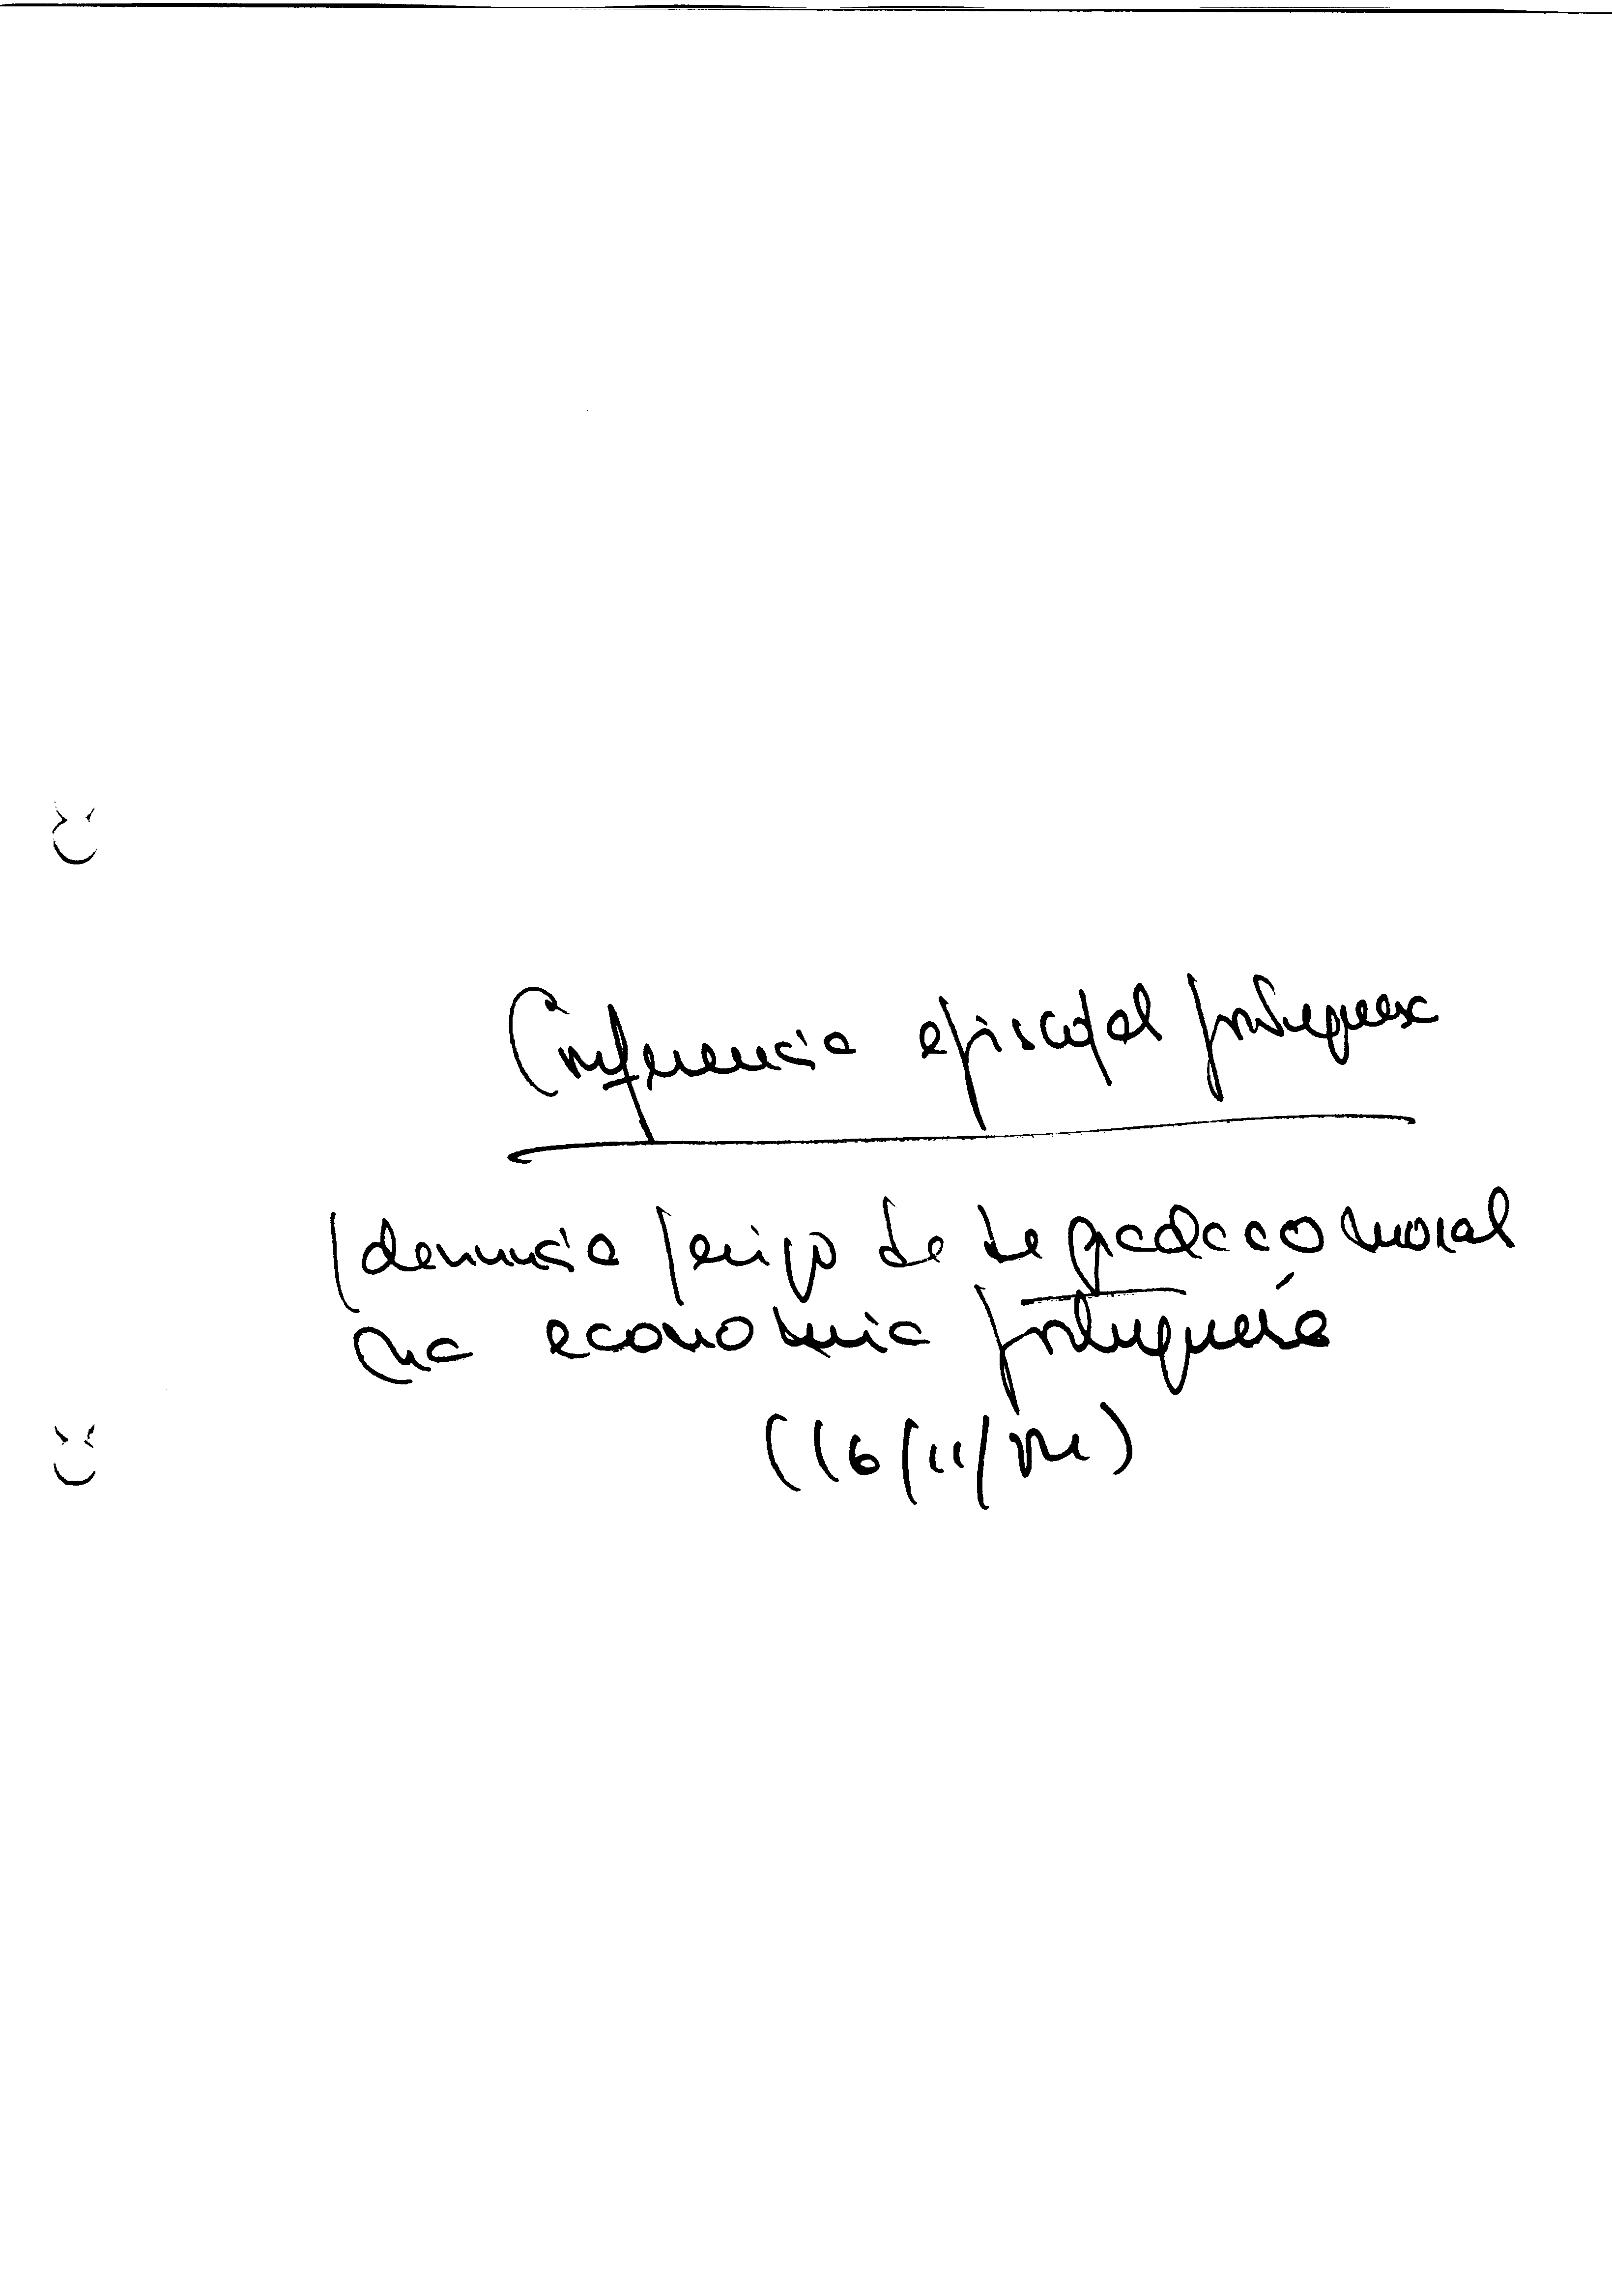 Conferencia episcopal portuguesa
denuncia perigo de degradacao moral
na economia portuguesa
(16/11/